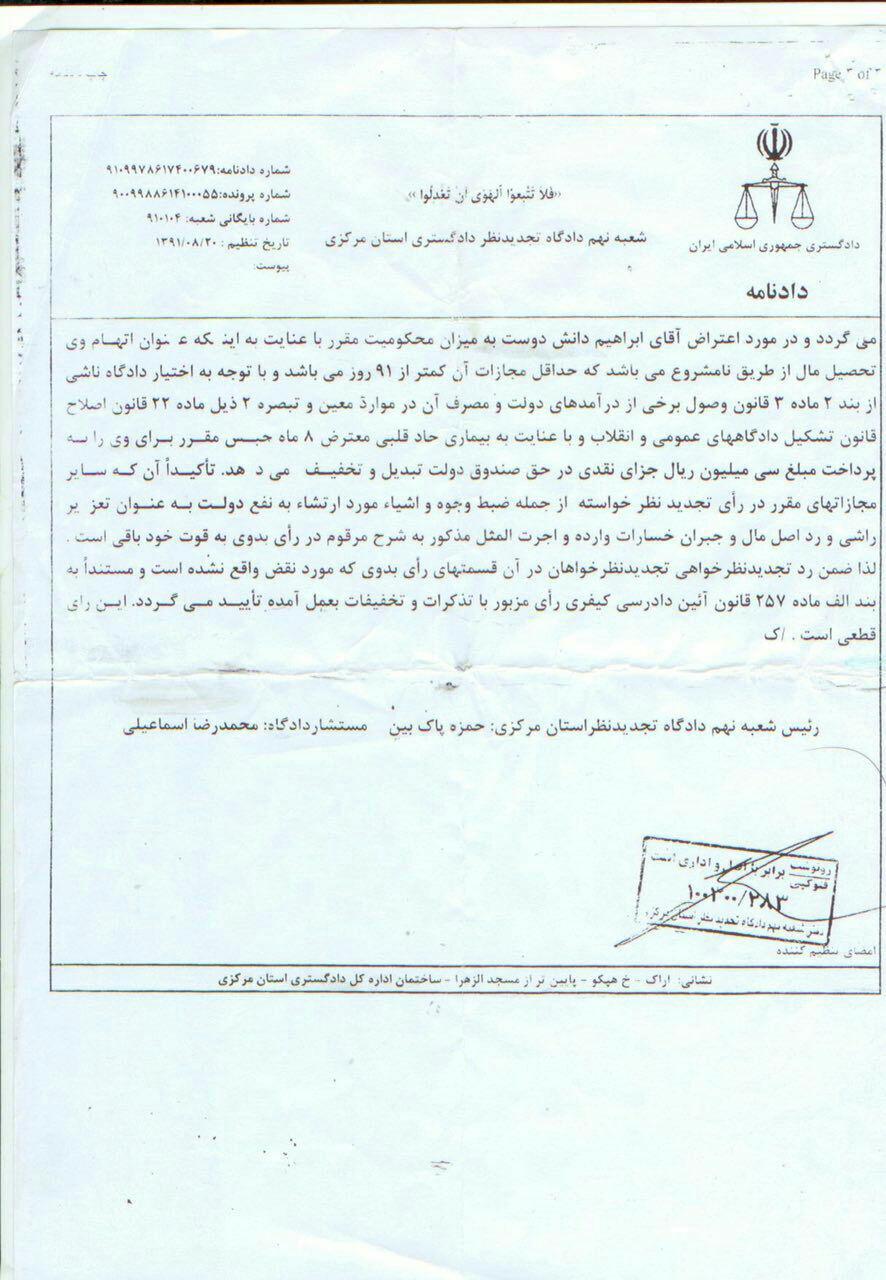 Page ۳ of ۳
دادگستری جمهوری اسلامی ایران
«فَلاَ تَتَّبِعوُا اَلهَوَی اَن تَعدِلُوا»
شعبه نهم دادگاه تجدیدنظر دادگستری استان مرکزی
شماره دادنامه:۹۱۰۹۹۷۸۶۱۷۴۰۰۶۷۹
شماره پرونده:۹۰۰۹۹۸۸۶۱۴۱۰۰۰۵۵
شماره بایگانی شعبه: ۹۱۰۱۰۴
تاریخ تنظیم : ۱۳۹۱/۰۸/۲۰
پیوست:
دادنامه
می گردد و در مورد اعتراض آقای ابراهیم دانش دوست به میزان محکومیت مقرر با عنایت به اینکه عنوان اتهام وی
تحصیل مال از طریق نامشروع می باشد که حداقل مجازات آن کمتر از ۹۱ روز می باشد و با توجه به اختیار دادگاه ناشی
از بند ۲ ماده ۳ قانون وصول برخی از درآمدهای دولت و مصرف آن در موارد معین و تبصره ۲ ذیل ماده ۲۲ قانون اصلاح
قانون تشکیل دادگاههای عمومی و انقلاب و با عنایت به بیماری حاد قلبی معترض ۸ ماه حبس مقرر برای وی را به
پرداخت مبلغ سی میلیون ریال جزای نقدی در حق صندوق دولت تبدیل و تخفیف می د هد. تأکیداً آن که سایر
مجازاتهای مقرر در رأی تجدید نظر خواسته از جمله ضبط وجوه و اشیاء مورد ارتشاء به نفع دولت به عنوان تعز یر
راشی و رد اصل مال و جبران خسارات وارده و اجرت المثل مذکور به شرح مرقوم در رأی بدوی به قوت خود باقی است .
لذا ضمن رد تجدیدنظرخواهی تجدیدنظرخواهان در آن قسمتهای رأی بدوی که مورد نقض واقع نشده است و مستنداً به
بند الف ماده ۲۵۷ قانون آئین دادرسی کیفری رأی مزبور با تذکرات و تخفیفات بعمل آمده تأیید می گردد. این رای
قطعی است . /ک
رئیس شعبه نهم دادگاه تجدیدنظراستان مرکزی: حمزه پاک بین    مستشاردادگاه: محمدرضا اسماعیلی
رونوست فتوکپی برابر با اصل و اداری است
۱۰۰۳۰۰/۲۸۳
دفتر شعبه نهم دادگاه تجدید نظر استان مرکزی
امضای تنظیم کننده
نشانی: اراک - خ هپکو - پایین تر از مسجد الزهرا - ساختمان اداره کل دادگستری استان مرکزی